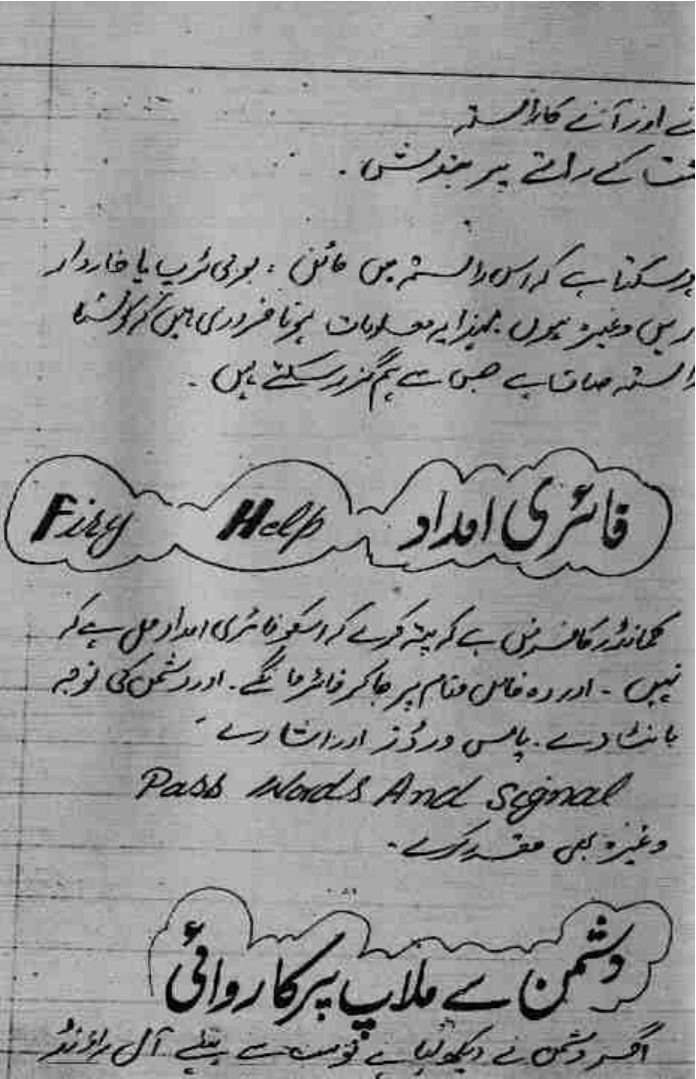 نے اور آنے کا راستہ
کے راستے پر بندش ۔
ہو سکتا ہے کہ اس راستہ میں مائن ، بوبی ٹریپ یا خاردار
وغیرہ ہوں لہذا یہ معلومات ہونا ضروری ہیں کہ کونسا
راستہ صاف ہے جس سے ہم گزر سکتے ہیں ۔
فائری امداد Firy Help
کمانڈر کا فرض ہے کہ پتہ کرے کہ اسکو فائری امداد ملی ہے کہ
نہیں ۔ اور وہ خاص مقام پر جا کر فائر مانگے ۔ اور دشمن کی توجہ
بانٹ دے ۔ پاس ورڈز اور اشارے
Pass Words And Signal
وغیرہ بھی مقرر کرے ۔
دشمن سے ملاپ پر کاروائی
اگر دشمن نے دیکھ لیا ہے تو سب سے پہلے آل راؤنڈ